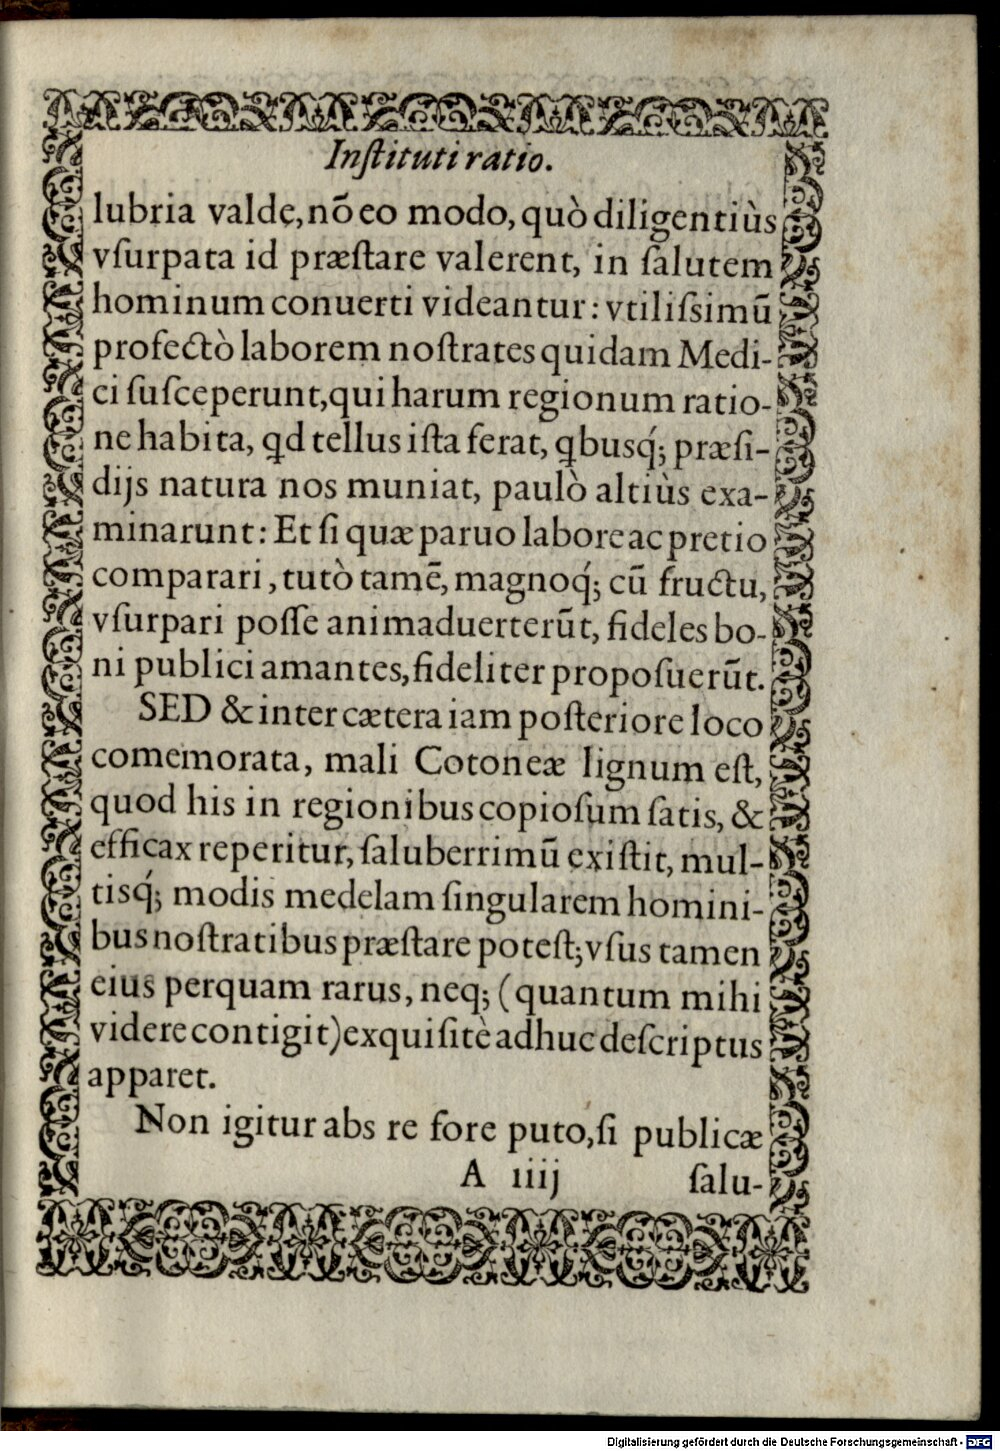 Inſtituti ratio.
lubria valde, nõ eo modo, quò diligentiùs
vſurpata id præſtare valerent, in ſalutem
hominum conuerti videantur: vtiliſsimũ
profectò laborem noſtrates quidam Medi-
ci ſuſceperunt, qui harum regionum ratio-
ne habita, qd tellus iſta ferat, qbusq́; præſi-
dijs natura nos muniat, paulò altiùs exa-
minarunt: Et ſi quæ paruo labore ac pretio
comparari, tutò tamẽ, magnoq́; cũ fructu,
vſurpari poſſe animaduerterũt, fideles bo-
ni publici amantes, fideliter propoſuerũt.
SED & inter cætera iam poſteriore loco
comemorata, mali Cotoneæ lignum eſt,
quod his in regionibus copioſum ſatis, &
efficax reperitur, ſaluberrimũ exiſtit, mul-
tisq́; modis medelam ſingularem homini-
bus noſtratibus præſtare poteſt; vſus tamen
eius perquam rarus, neq; (quantum mihi
videre contigit) exquiſitè adhuc deſcriptus
apparet.
Non igitur abs re fore puto, ſi publicæ
A iiij ſalu-
Digitalisierung gefördert durch die Deutsche Forschungsgemeinschaft - DFG